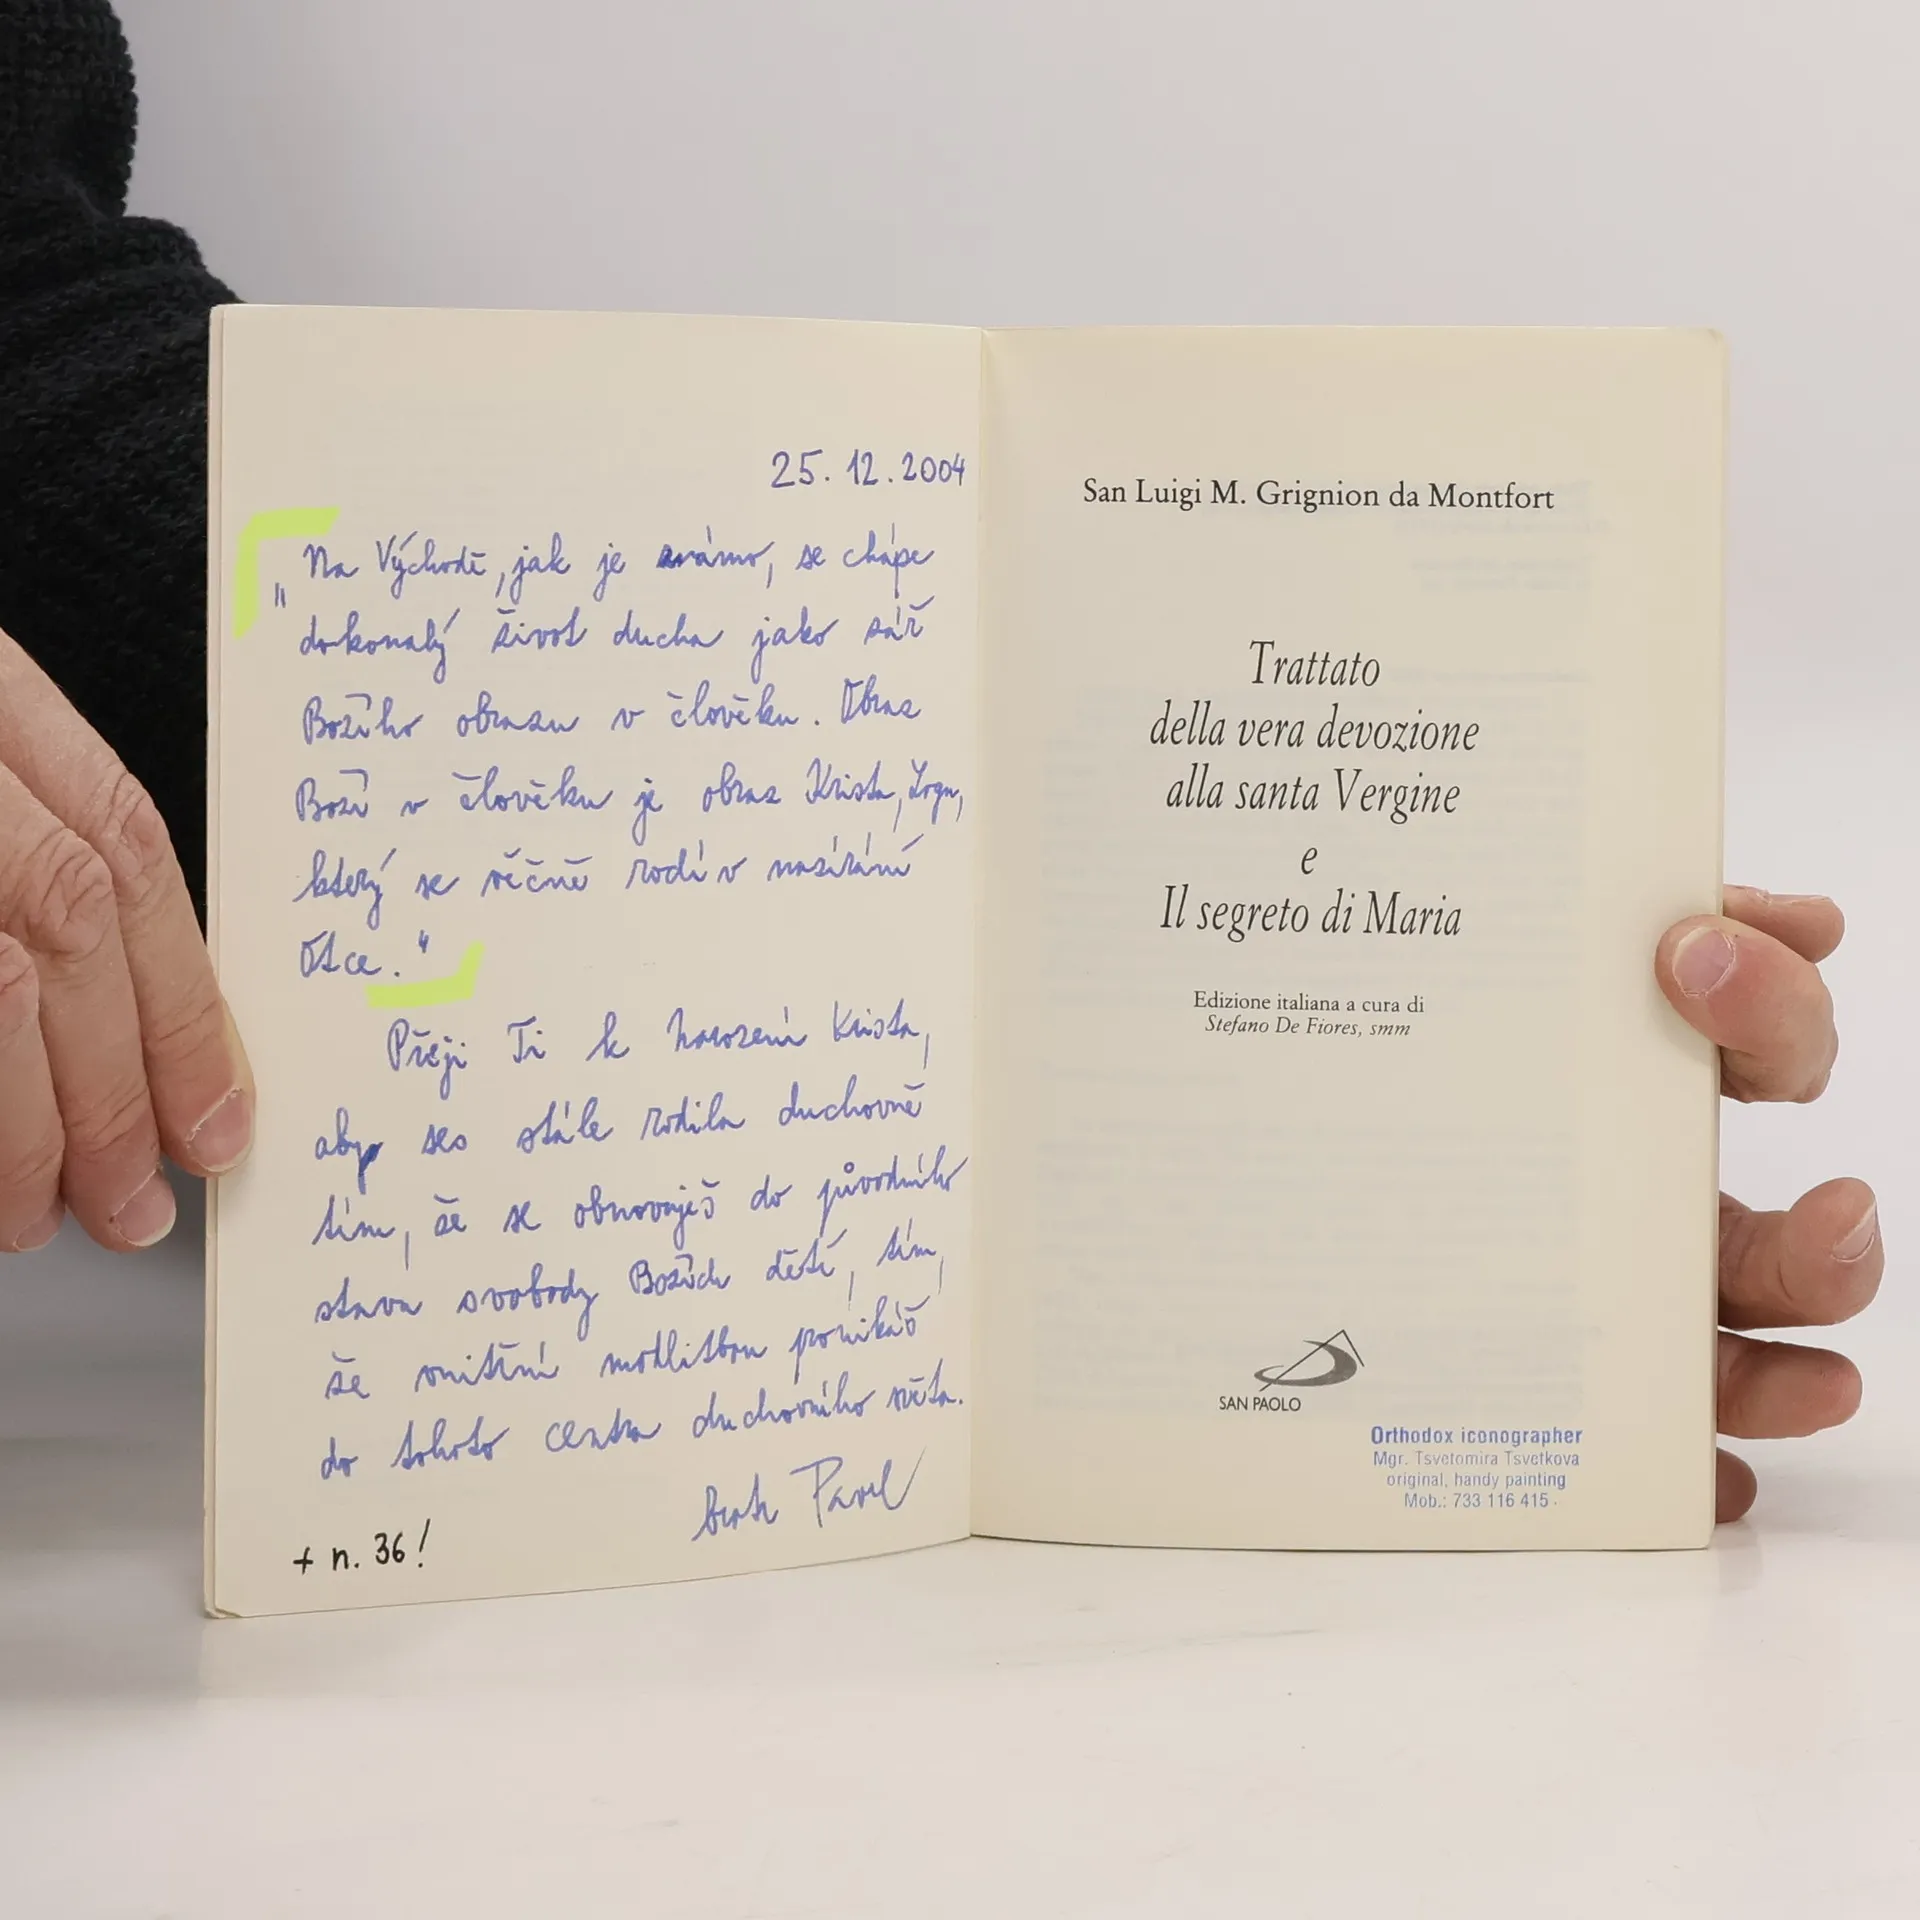 25. 12. 2004
„Na Východě, jak je známo, se chápe
dokonalý život ducha jako zář
Božího obrazu v člověku. Obraz
Boží v člověku je obraz Krista, Logu,
který se věčně rodí v nazírání
Otce."
Přeji Ti k narození Krista,
aby ses stále rodila duchovně
tím, že se obnovuješ do původního
stavu svobody Božích dětí, tím,
že vnitřní modlitbou pronikáš
do tohoto centra duchovního světa.
bratr Pavel
+ n. 36!
San Luigi M. Grignion da Montfort
Trattato
della vera devozione
alla santa Vergine
e
Il segreto di Maria
Edizione italiana a cura di
Stefano De Fiores, smm
SAN PAOLO
Orthodox iconographer
Mgr. Tsvetomira Tsvetkova
original, handy painting
Mob.: 733 116 415